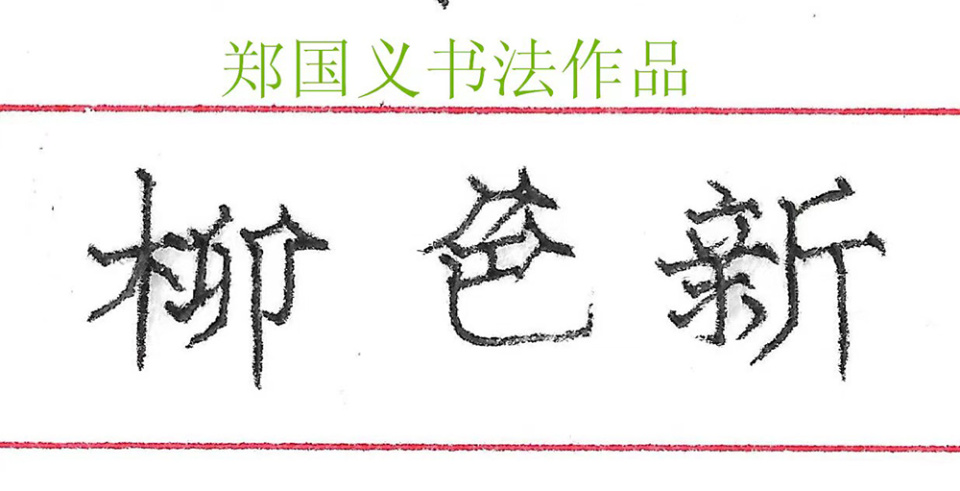 郑国义书法作品
柳色新